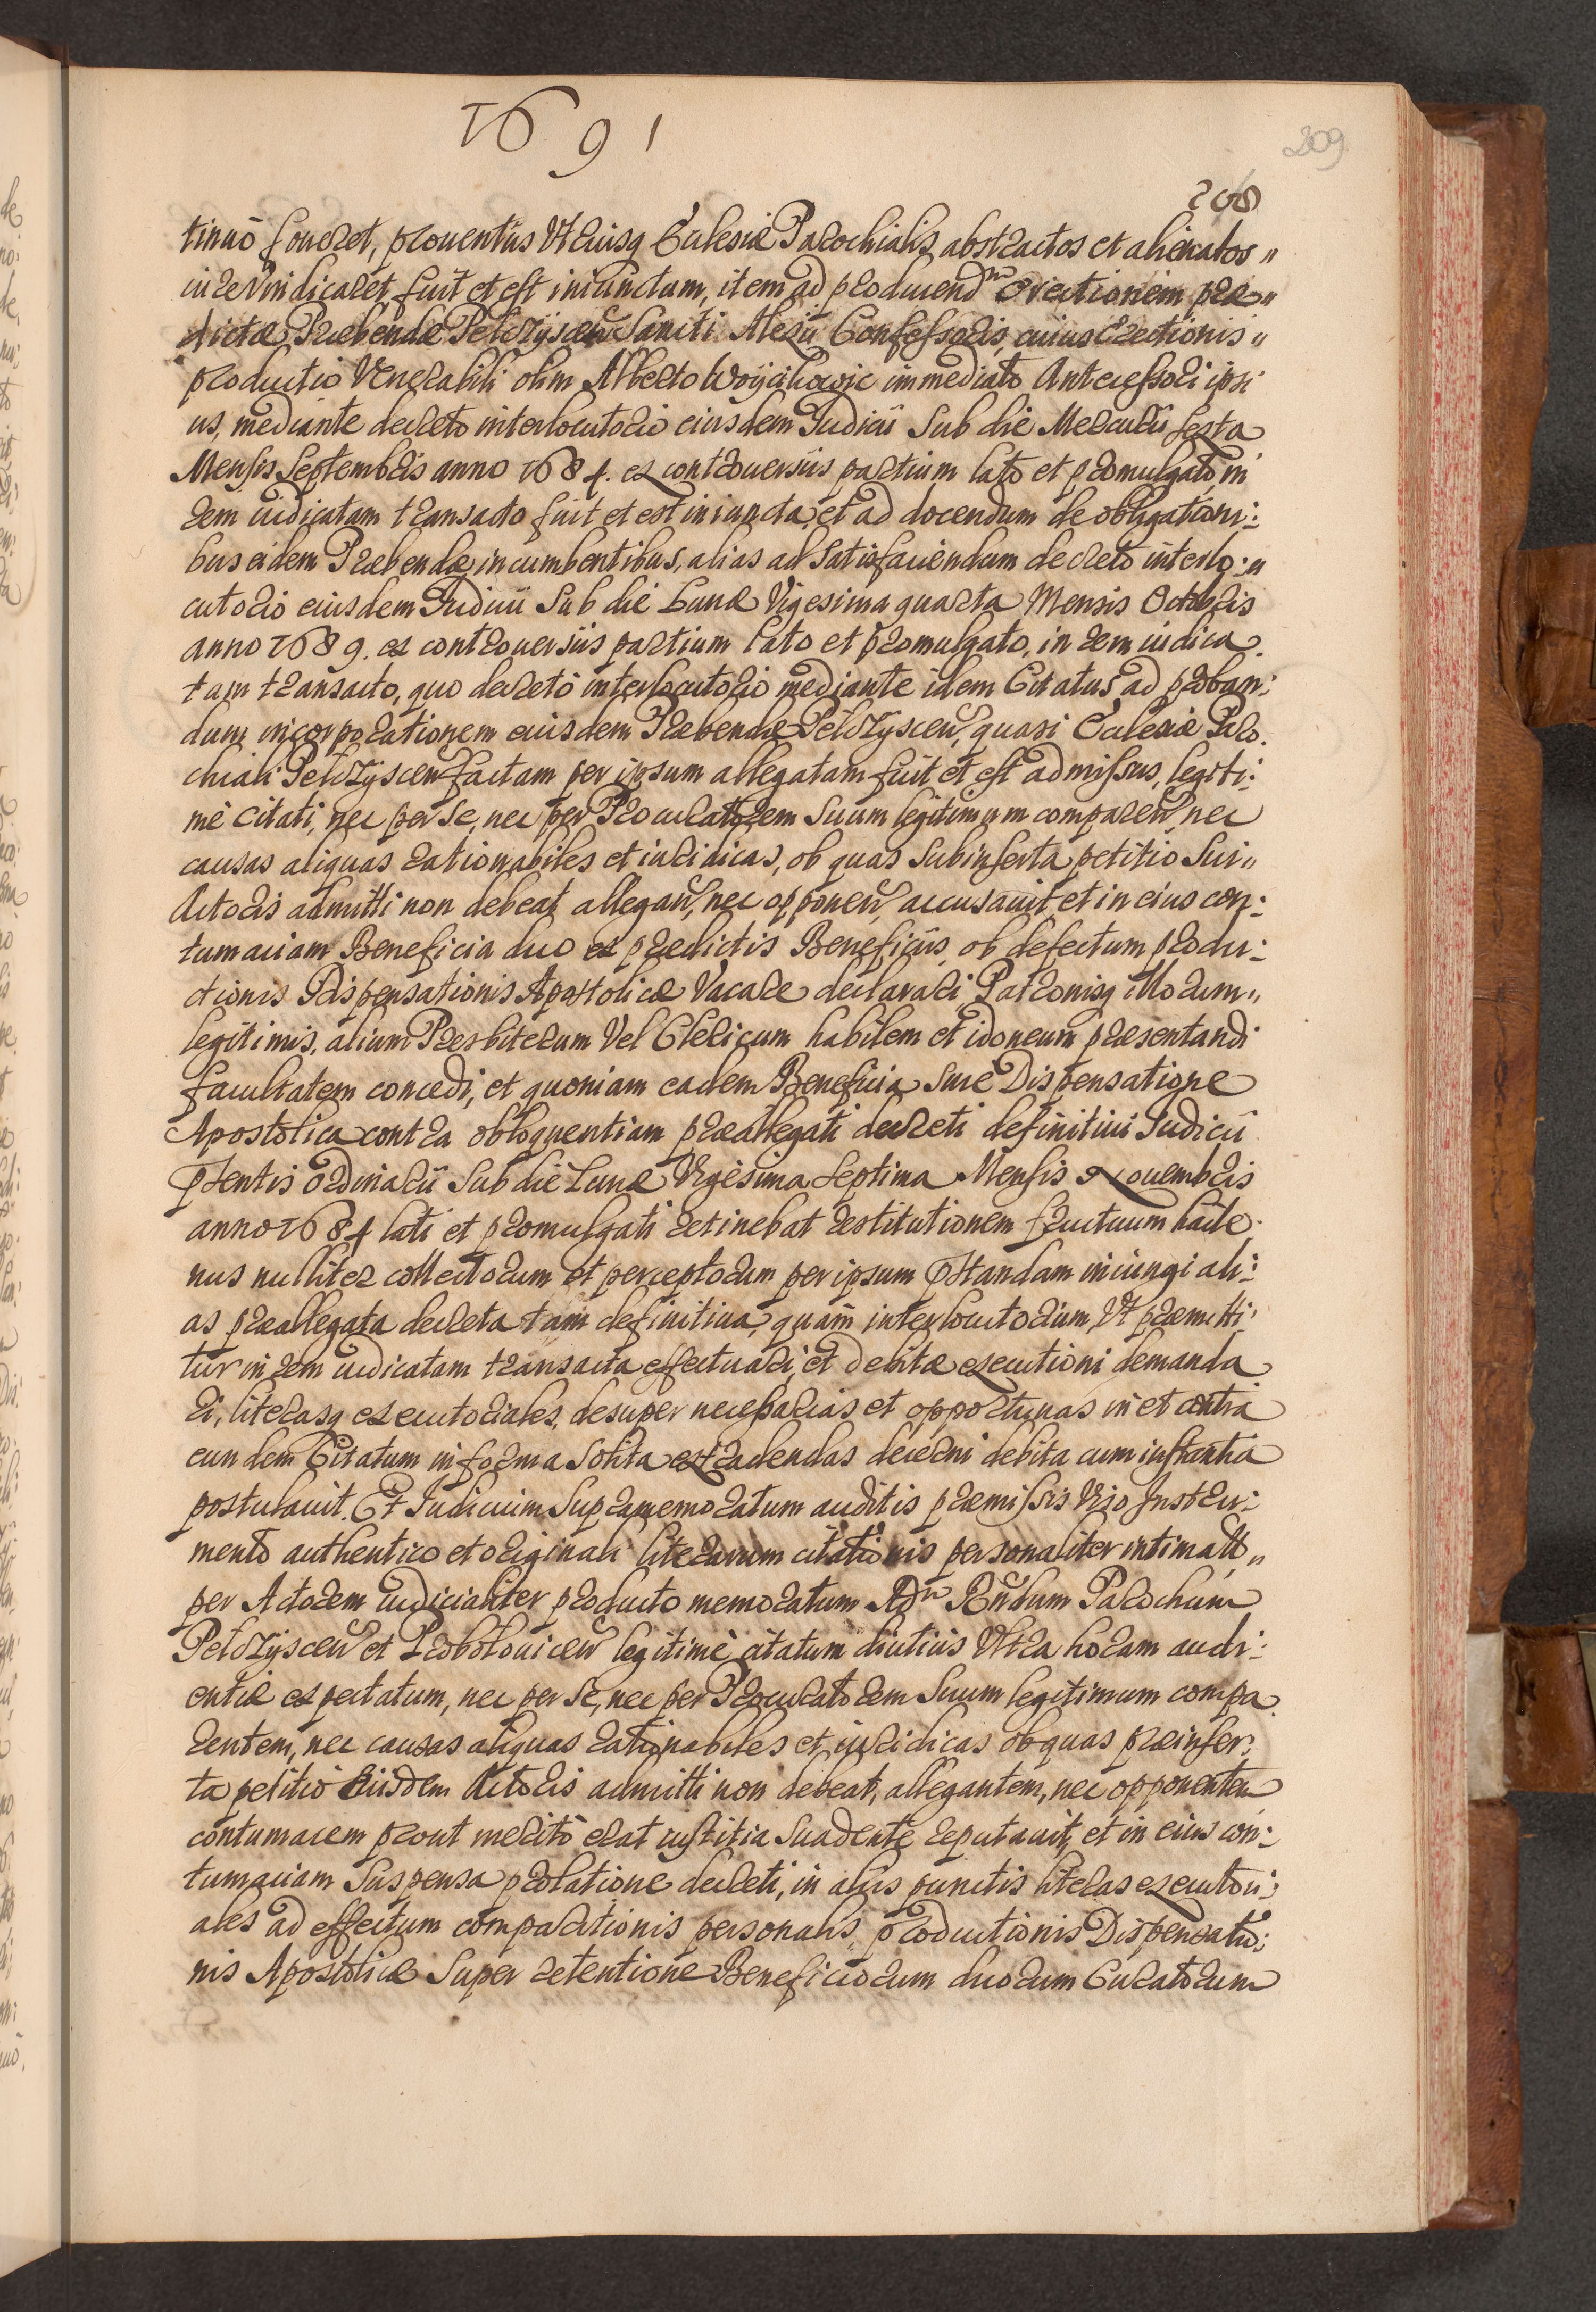 1691
209
208
tinuò foueret, prouentus Vtriusq Ecclesiæ Parochialis abstractos et alienatos „
iure vindicaret, fuit et est iniunctum, item ad producend^m Erectionem præ „
dictæ Præbendæ Pelczyscen Sancti Alexii Confessoris, cuius Erectionis „
productio Venerabili olim Alberto Woyciechowic immediato Antecessori ipsi
us, mediante decreto interlocutorio eiusdem Iudicii Sub die Mercurii Sexta
Mensis Septembris anno 1684. ex controuersiis partium lato et promulgato in
rem iudicatam transacto fuit et est iniuncta, et ad docendum de obligationi:
bus eidem Præbendæ incumbentibus, alias ad satisfaciendum decreto interlo:
cutorio eiusdem Iudicii Sub die Lunæ Vigesima quarta Mensis Octobris
anno 1689. ex controuersiis partium lato et promulgato, in rem iudica.
tam transacto, quo decreto interlocutorio mediante idem Citatus ad proban:
dum incorporationem eiusdem Præbendæ Pelczyscen, quasi Ecclesiæ Paro.
chiali Pelczyscen factam per ipsum allegatam fuit et est admissus, legiti:
mè Citati, nec per se, nec per Procuratorem Suum legitimum comparen nec
causas aliquas rationabiles et iuridicas, ob quas Subinserta petitio Sui „
Actoris admitti non debeat allegan, nec opponen, accusauit et in eius con:
tumaciam Beneficia duo ex prædictis Beneficiis, ob defectum produ:
ctionis Dispensationis Apostolicæ Vacare declarari Patronisq illorum „
legitimis, alium Præsbiterum Vel Clericum habilem et idoneum præsentandi
facultatem concedi, et quoniam eadem Beneficia Sine Dispensatione
Apostolica contra obloquentiam præallegati decreti definitiui Iudicii
Pñtentis Ordinarii Sub die Lunæ Vigesima Septima Mensis Nouembris
anno 1684 lati et promulgati retinebat restitutionem fructuum hacte.
nus nulliter collectorum et perceptorum per ipsum Pstandam iniungi ali:
as præallegata decreta tam definitiua, quàm interlocutorium, Vt præmitti:
tur in rem iudicatam transacta effectuari, et debitæ executioni demanda
ri, literasq executoriales, desuper necessarias et opportunas in et contra
eundem Citatum in forma Solita extradendas decerni debita cum instantia
postulauit. Et Iudicium Supramemoratum auditis præmissis Viso Instru:
mento authentico et originali literarum citationis personaliter intimatt „
per Actorem iudicialiter producto memoratum Adm Rndum Parochum
Pelczyscen et Probolouicen legitimè citatum diutius Vltra horam audi:
entiæ expectatum, nec per se, nec per Procuratorem Suum legitimum compa.
rentem, nec causas aliquas rationabiles et iuridicas ob quas præinser:
ta petitio Eiusdem Actoris admitti non debeat, allegantem, nec opponentem
contumacem prout meritò erat iustitia suadente reputauit, et in eius con:
tumaciam Suspensa prolatione decreti, in aliis punctis literas executori:
ales ad effectum comparitionis personalis, productionis Dispensatio:
nis Apostolicæ Super retentione Beneficiorum duorum Curatorum